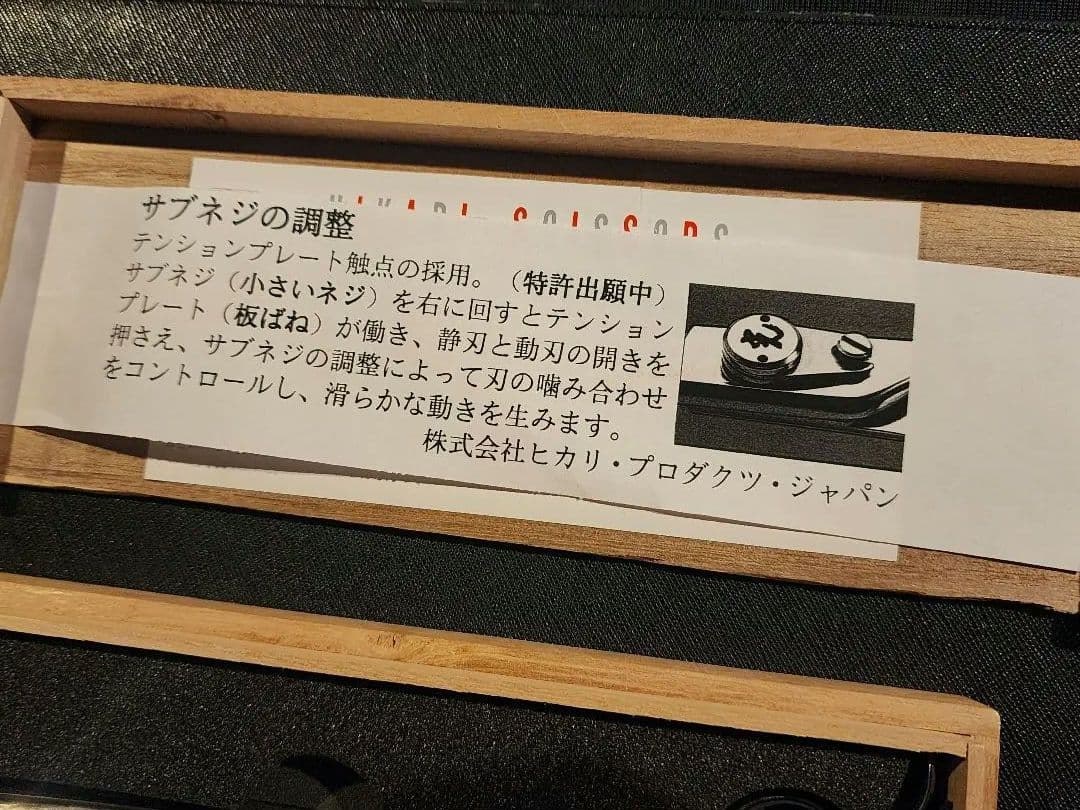 HIKARI SCISSORS
サブネジの調整
テンションプレート触点の採用。（特許出願中）
サブネジ（小さいネジ）を右に回すとテンション
プレート（板ばね）が働き、静刃と動刃の開きを
押さえ、サブネジの調整によって刃の噛み合わせ
をコントロールし、滑らかな動きを生みます。
株式会社ヒカリ・プロダクツ・ジャパン
光